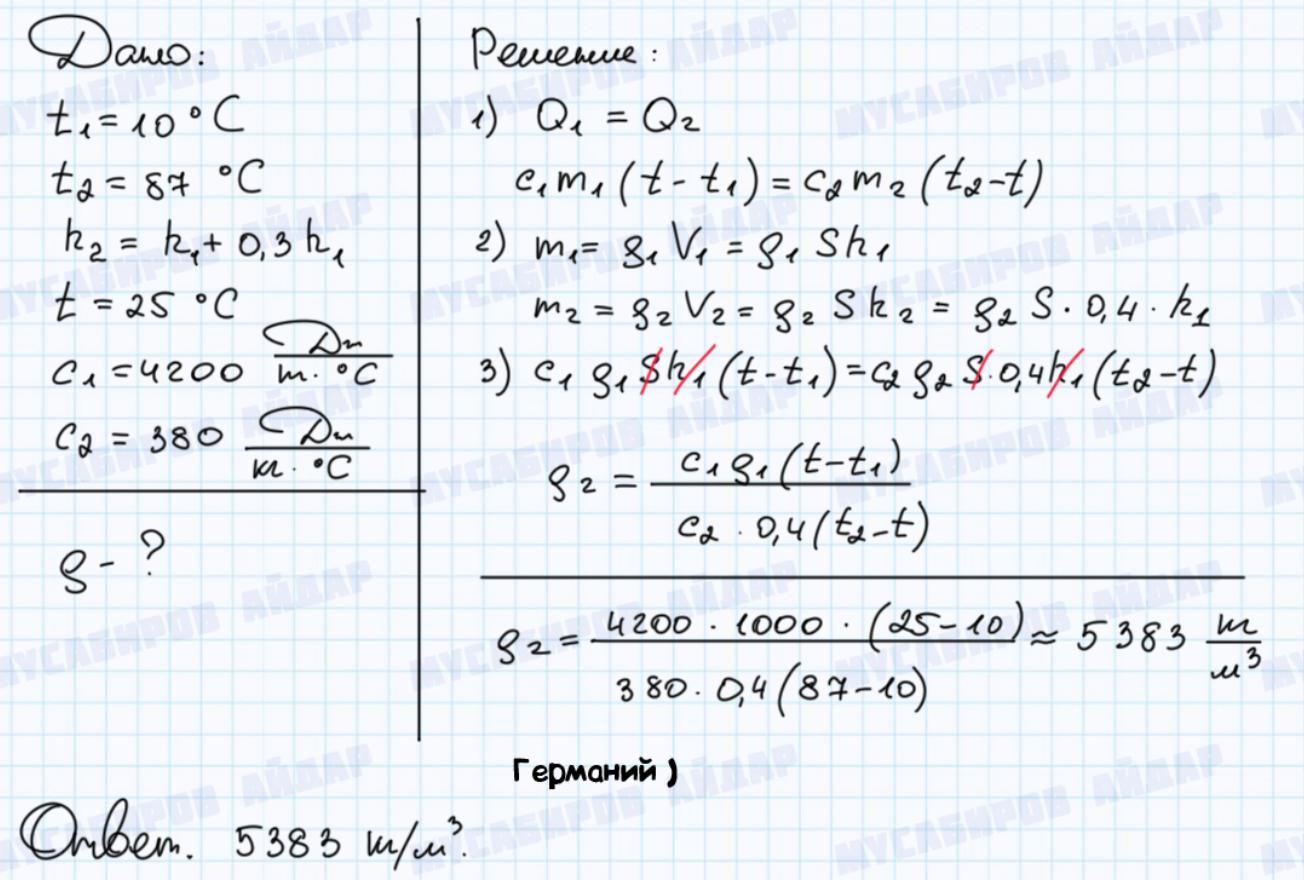 Дано:
t₁ = 10 °C
t₂ = 87 °C
h₂ = h₁ + 0,3 h₁
t = 25 °C
c₁ = 4200 Дж/кг · °C
c₂ = 380 Дж/кг · °C
ρ - ?
Решение:
1) Q₁ = Q₂
c₁m₁(t - t₁) = c₂m₂(t₂ - t)
2) m₁ = ρ₁V₁ = ρ₁Sh₁
m₂ = ρ₂V₂ = ρ₂Sh₂ = ρ₂S · 0,4 · h₁
3) c₁ρ₁Sh₁(t - t₁) = c₂ρ₂S · 0,4h₁(t₂ - t)
ρ₂ = c₁ρ₁(t - t₁) / c₂ · 0,4(t₂ - t)
ρ₂ = 4200 · 1000 · (25 - 10) / 380 · 0,4(87 - 10) ≈ 5383 кг/м³
Германий )
Ответ. 5383 кг/м³.
МУСАБИРОВ АЙДАР